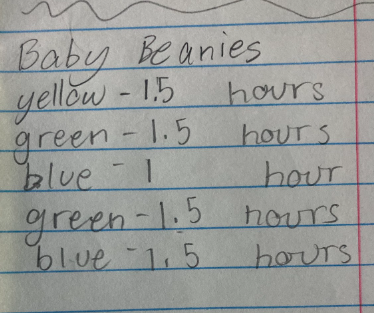 Baby Beanies
yellow - 1.5 hours
green - 1.5 hours
blue - 1 hour
green - 1.5 hours
blue - 1.5 hours